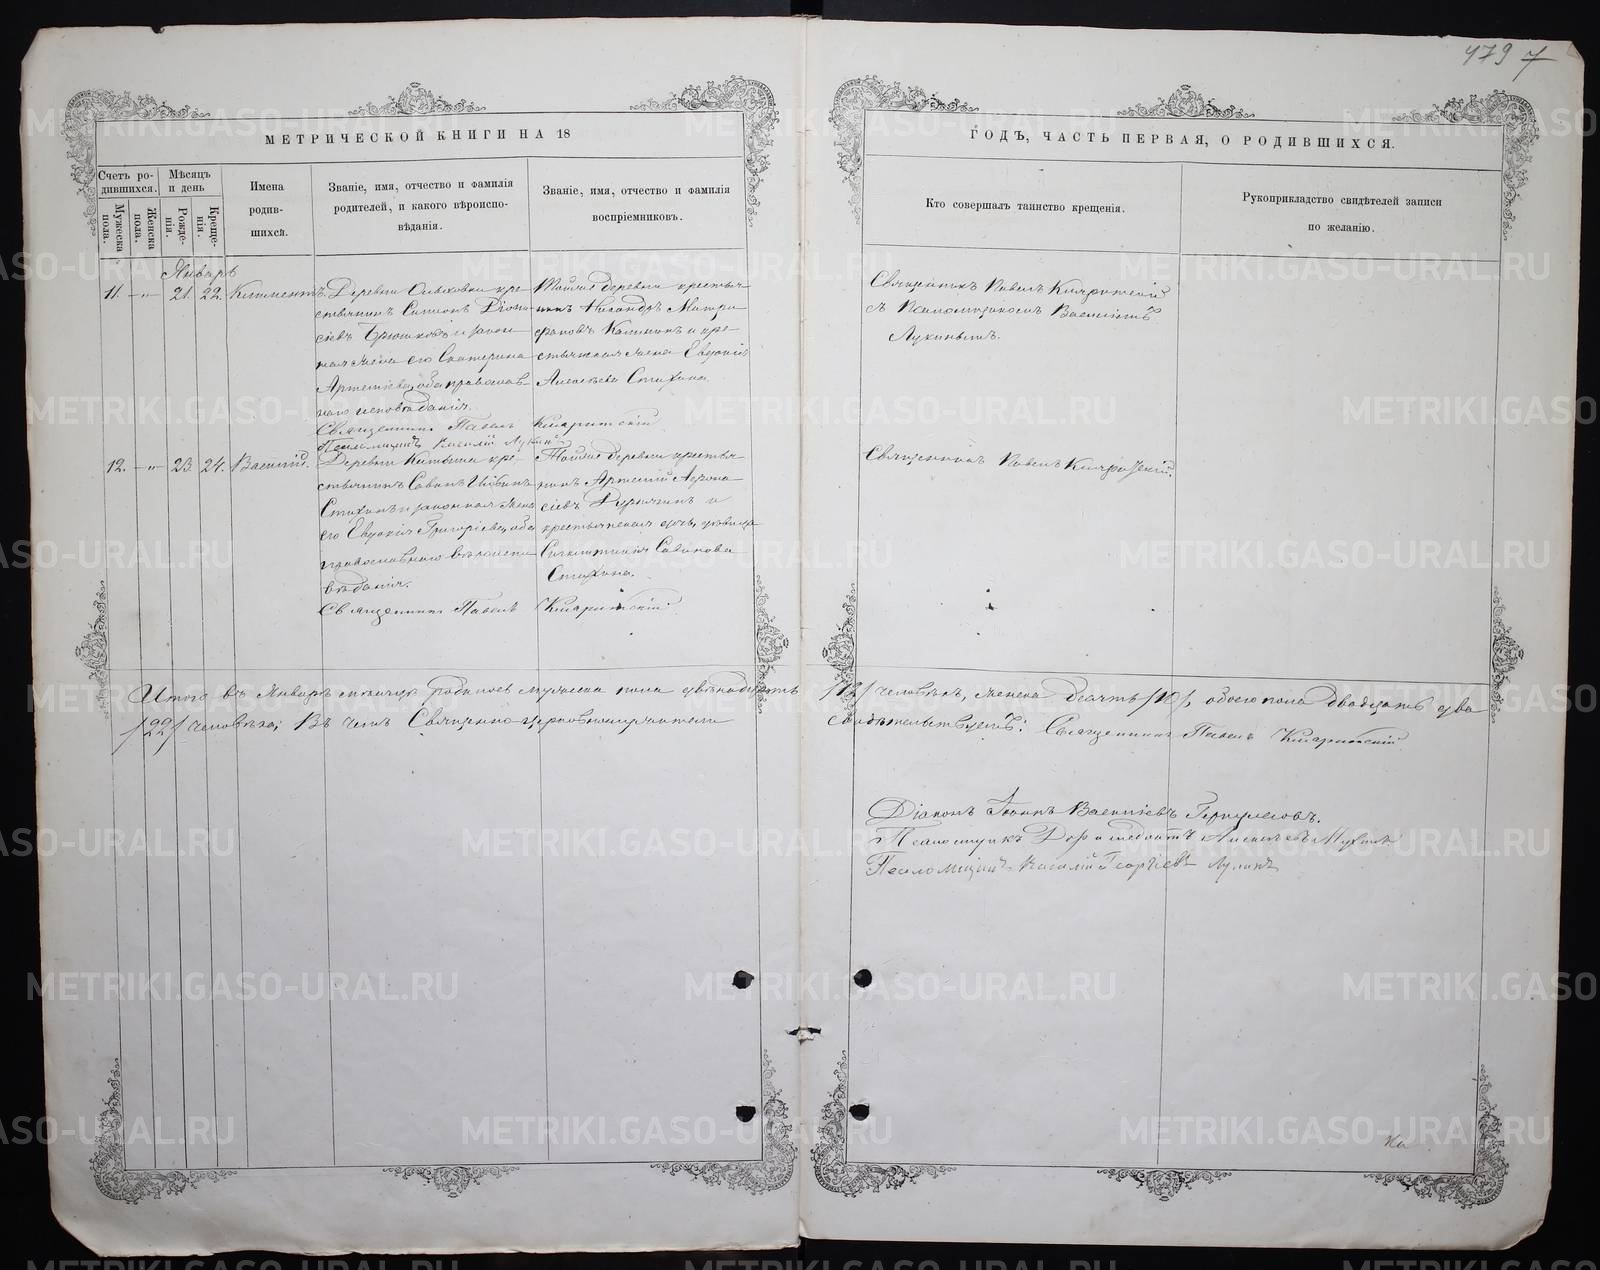 479 7
МЕТРИЧЕСКОЙ КНИГИ НА 18
ГОДЪ, ЧАСТЬ ПЕРВАЯ, О РОДИВШИХСЯ.
Счетъ ро-
дившихся.
Мужеска
пола.
Женска
пола.
Мѣсяцъ
и день
Рожде-
нія.
Креще-
нія.
Имена
родив-
шихся.
Званіе, имя, отчество и фамилія
родителей, и какого вѣроиспо-
вѣданія.
Званіе, имя, отчество и фамилія
воспріемниковъ.
Кто совершалъ таинство крещенія.
Рукоприкладство свидѣтелей записи
по желанію.
Январь
11. - " - 21. 22. Климентъ.
Деревни Ольховки кре-
стьянинъ Симеонъ Діони-
сіевъ и закон-
ная жена его Екатерина
Артеміева, оба православ-
наго исповѣданія.
Священникъ Павелъ
Псаломщикъ Василій Лукинъ
Тойже деревни крестья-
нинъ Никандръ Митро-
фановъ и кре-
стьянская жена Евдокія
Алексѣева Стихина.
Священникъ Павелъ
съ Псаломщикомъ Василіемъ
Лукинымъ.
12. - " - 23 24. Василій.
Деревни кре-
стьянинъ Савинъ
Стихинъ и законная жена
его Евдокія Григоріева, оба
православнаго вѣроиспо-
вѣданія.
Священникъ Павелъ
Тойже деревни крестья-
нинъ Артемій
и
крестьянская дочь, дѣвица
Савинова
Стихина.
Священникъ Павелъ
Итого въ Январѣ мѣсяцѣ родилось мужеска пола двѣнадцать /12/ человѣкъ, женска десять /10/, обоего пола двадцать два
/22/ человѣка; Въ чемъ Священно-церковнослужители свидѣтельствуютъ: Священникъ Павелъ
Діаконъ Іоаннъ Васильевъ
Псаломщикъ
Псаломщикъ Василій Георгіевъ Лукинъ
METRIKI.GASO-URAL.RU